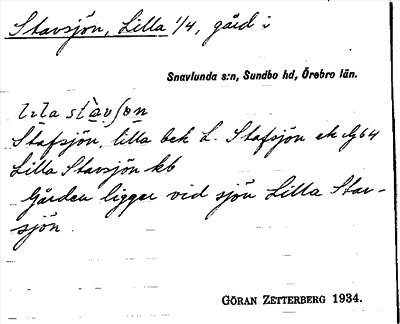 Stavsjön, Lilla 1/4, gård i
Snavlunda s:n, Sundbo hd, Örebro län.
lıla stàvʃɵn
Stafsjön, lilla bek L. Stafsjön ek Gb64
Lilla Stavsjön kb
Gården ligger vid sjön Lilla Stav-
sjön.
GÖRAN ZETTERBERG 1934.